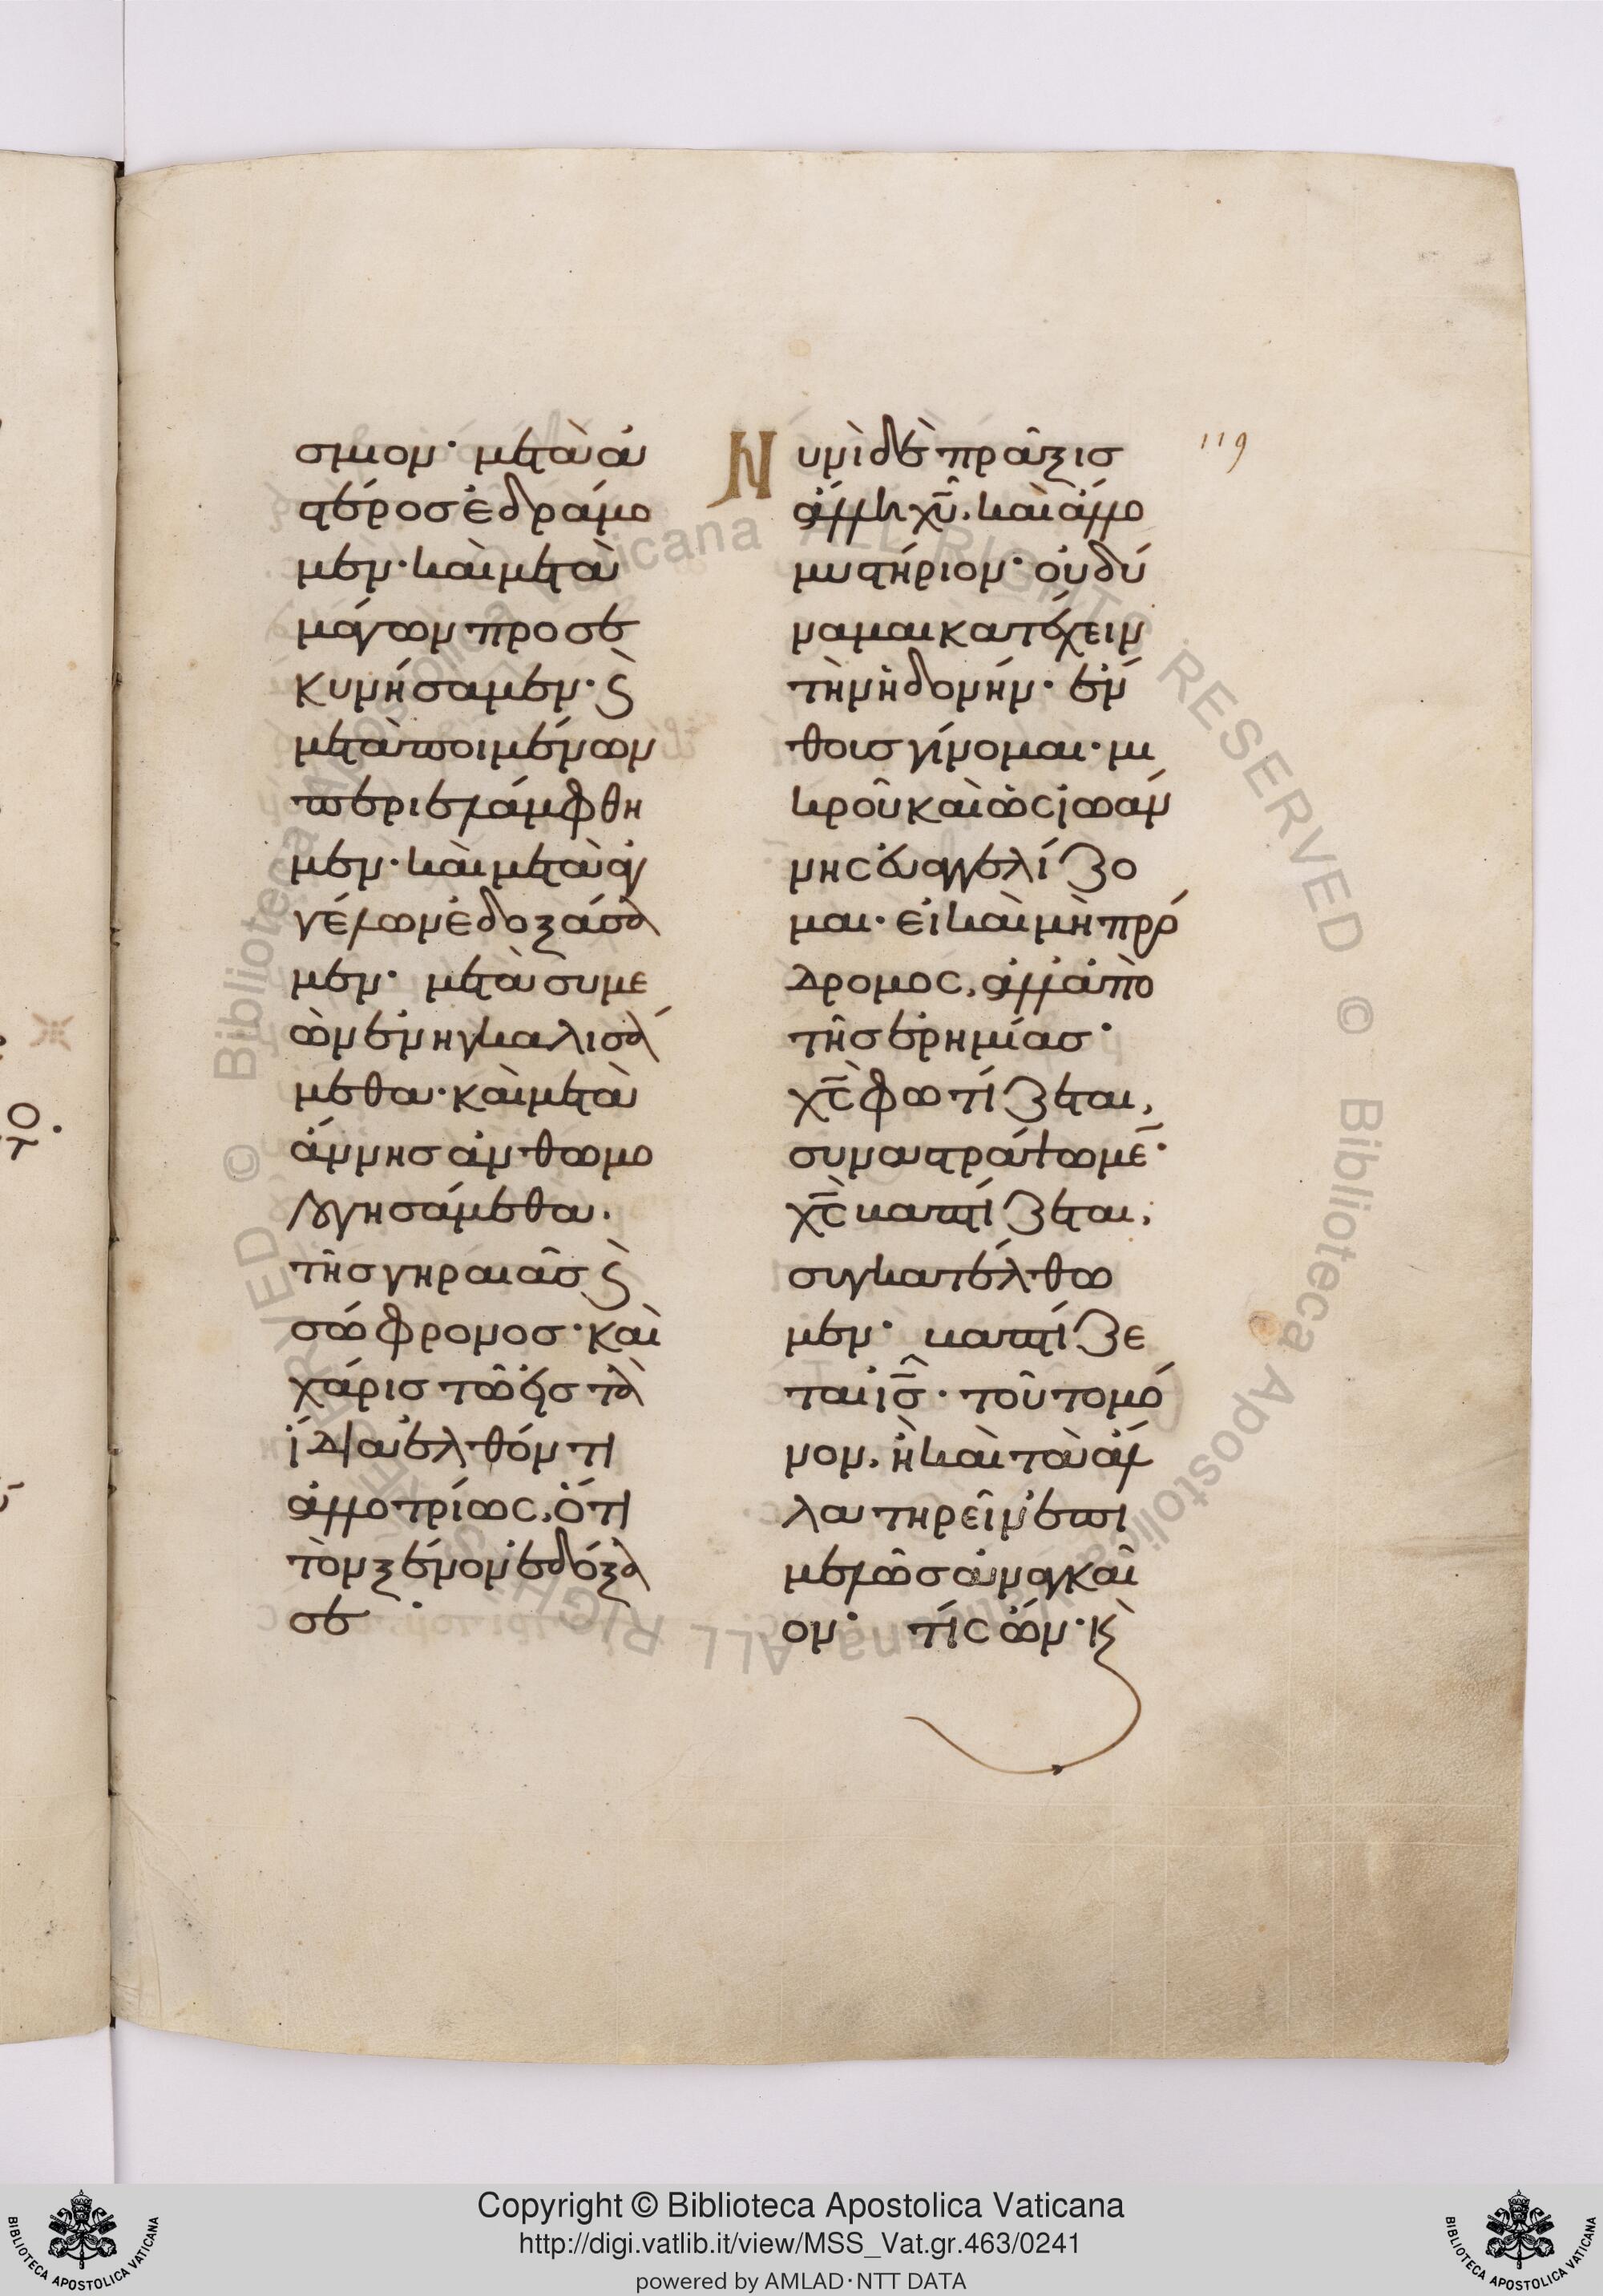 σιμον· μετὰ ἀ
στέρος ἐδράμο
μεν· καὶ μετὰ
μάγων προσε
κυνήσαμεν· ϛ̀
μετὰ ποιμένων
περιελάμφθη
μεν· καὶ μετὰ ἀγ
γέλων ἐδοξάσα
μεν· μετὰ συμε
ὼν ἐνηγκαλισά
μεθα· καὶ μετὰ
ἄννης ἀνθωμο
λογησάμεθα·
τῆς γηραιᾶς ϛ̀
σώφρονος· καὶ
χάρις τῶ εἰς τὰ
ἴδια ἐλθόντι
ἀλλοτρίως, ὅτι
τὸν ξένον ἐδόξα
σε·
Νυνὶ δὲ πρᾶξις
ἄλλη χ̅υ̅, καὶ ἄλλο
μυστήριον· οὐ δύ
ναμαι κατέχειν
τὴν ἡδονήν· ἔν
θους γίνομαι· μι
κροῦ καὶ ὡς ἰωάν
νης εὐαγγελίζο
μαι· εἰ καὶ μὴ πρό
δρομος, ἀλλ' ἀπὸ
τῆς ἐρημίας·
χ̅ς̅ φωτίζεται,
συναστράψωμε̅·
χ̅ς̅ βαπτίζεται,
συγκατέλθω
μεν· βαπτίζε
ται ι̅ς̅· τοῦτο μό
νον, ἢ καὶ τὰ ἄλ
λα τηρεῖν ἐπι
μελῶς ἀναγκαῖ
ον· τίς ὢν· κ̀
119
Copyright © Biblioteca Apostolica Vaticana
http://digi.vatlib.it/view/MSS_Vat.gr.463/0241
powered by AMLAD·NTT DATA